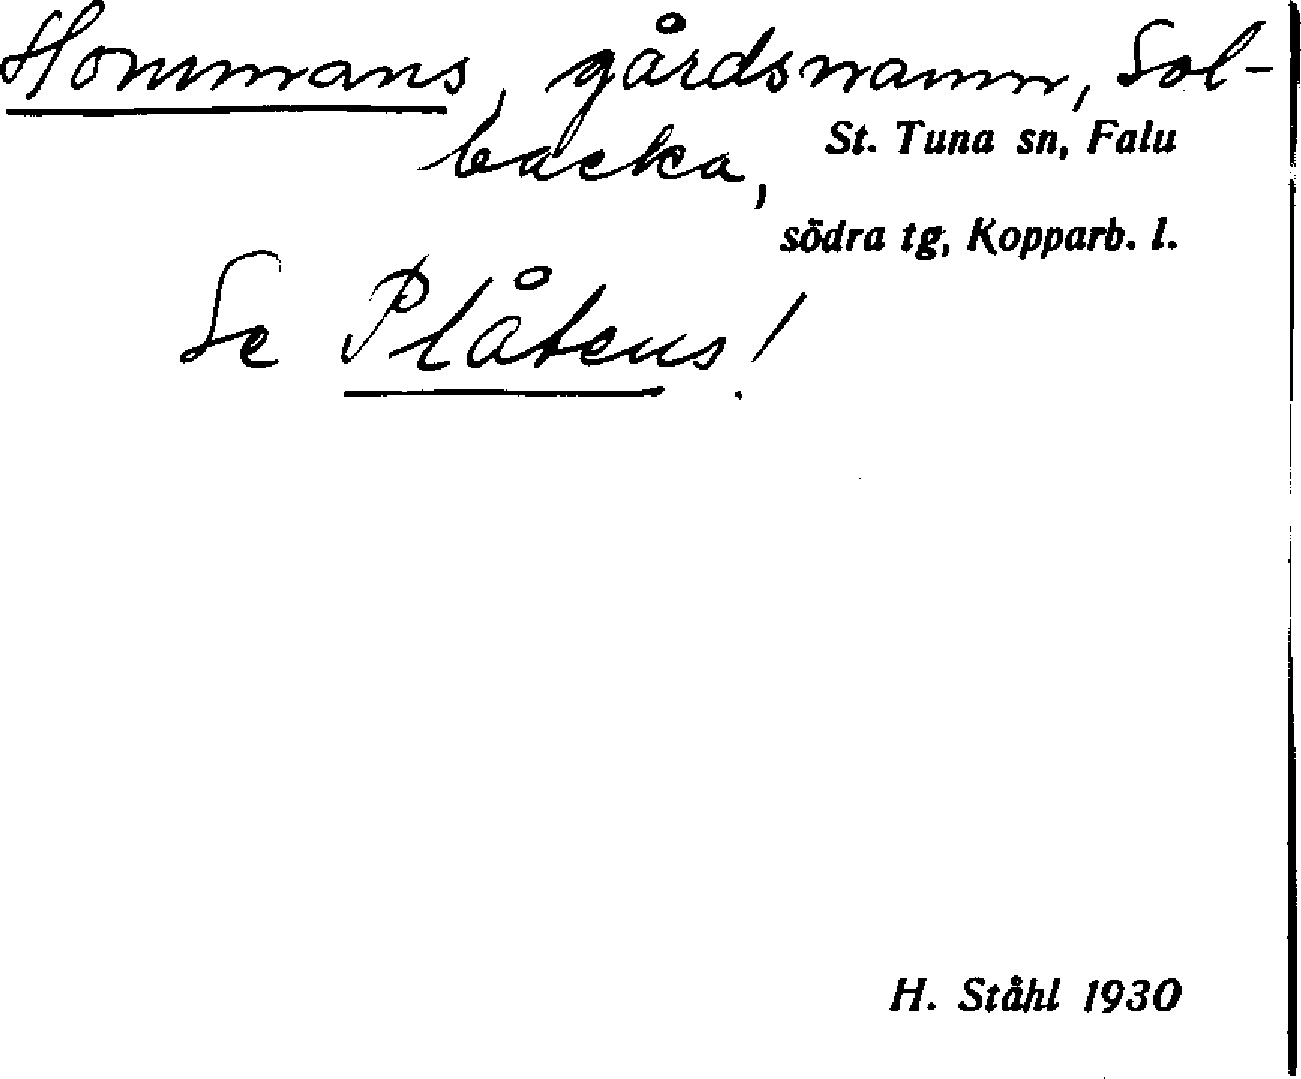 Hommans, gårdsnamn, Sol-
backa,
St. Tuna sn, Falu
södra tg, Kopparb. l.
Se Plåtens!
H. Ståhl 1930